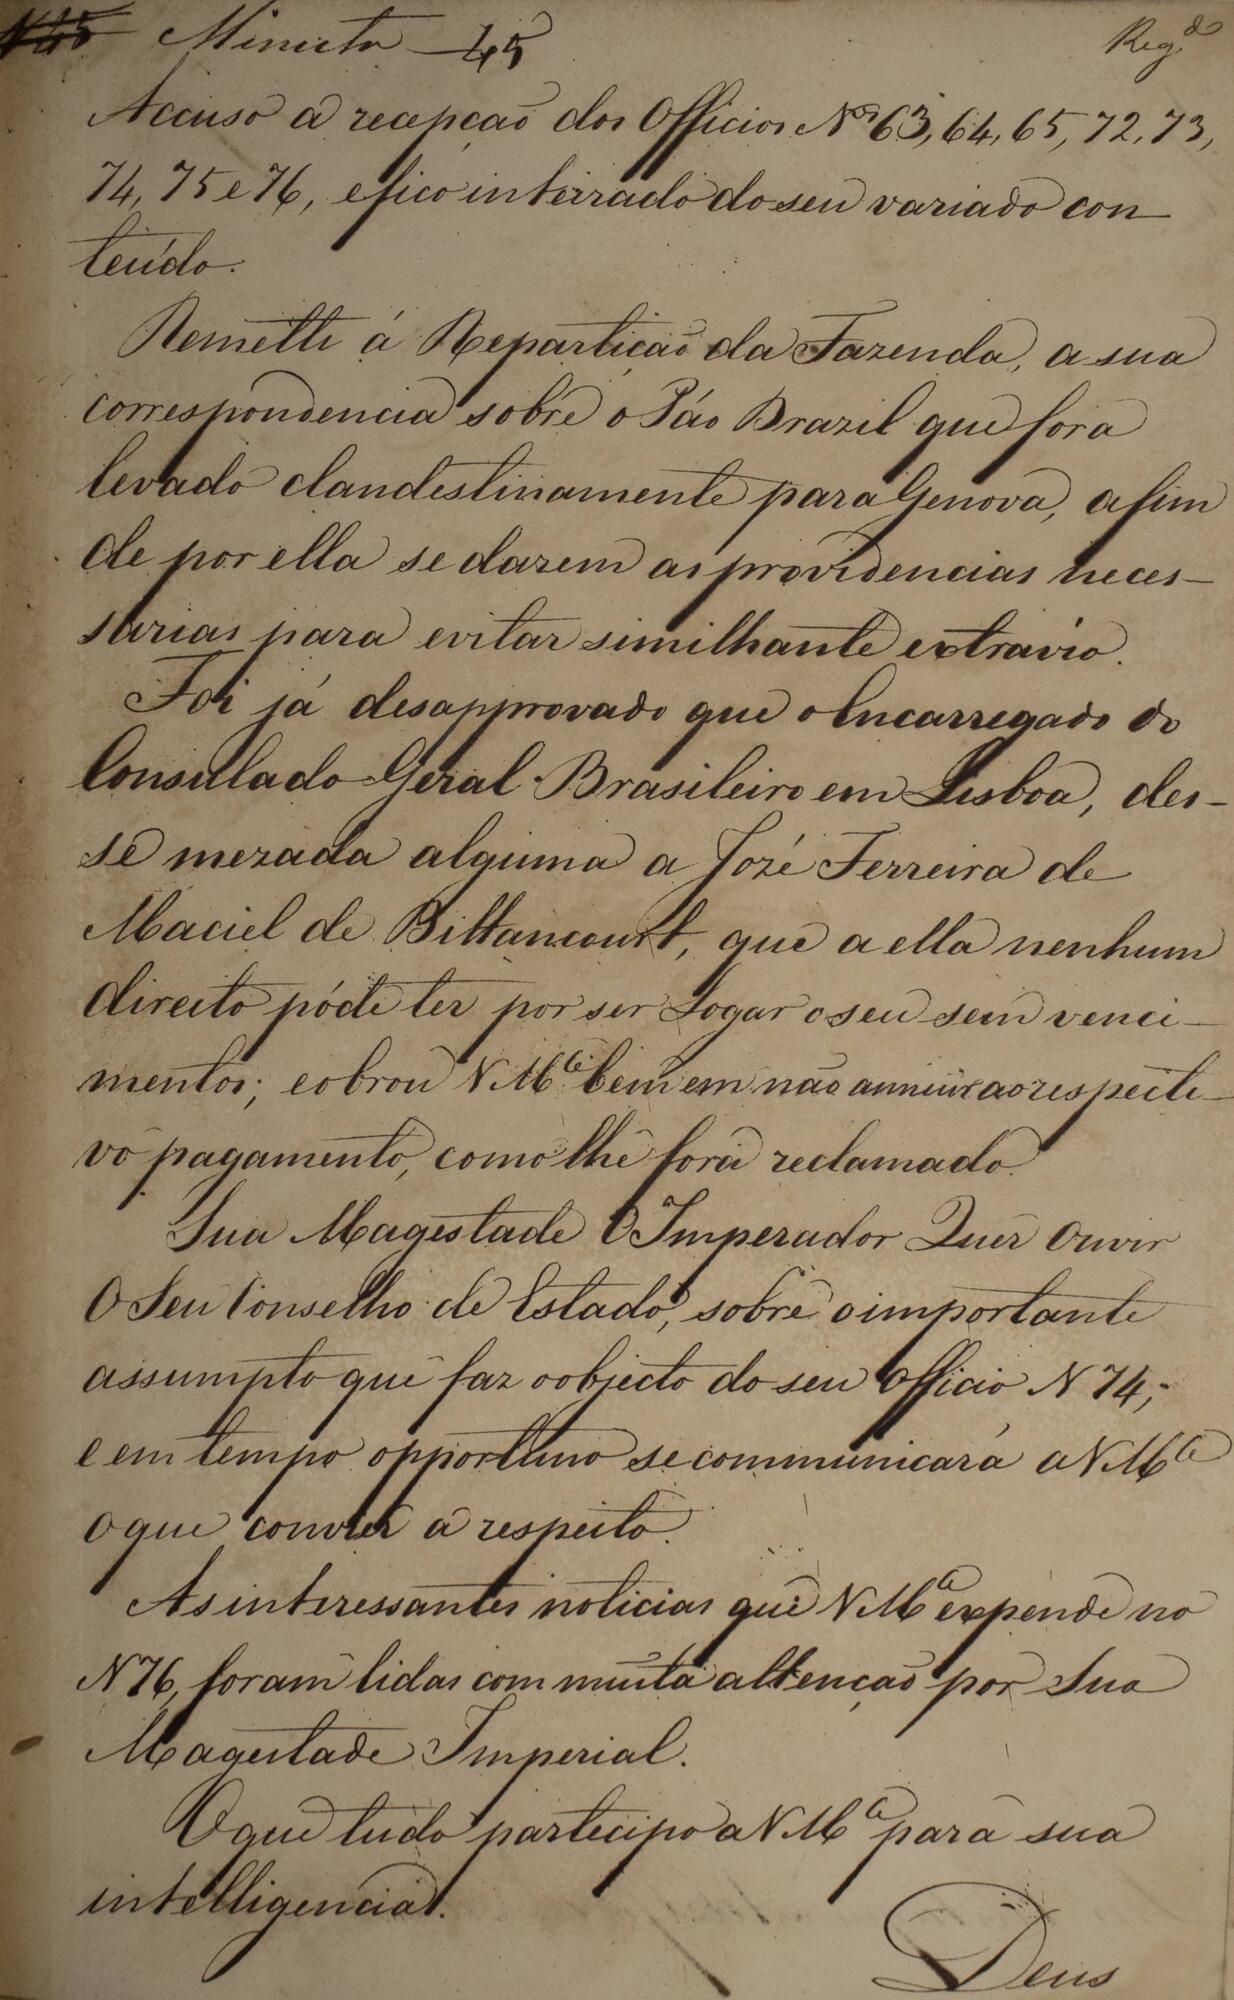 Minuta 45 Reg.do
Accuso a recepção dos Officios Nos 63, 64, 65, 72, 73,
74, 75 e 76, e fico inteirrado do seu variado con-
teúdo.
Remetti á Repartição da Fazenda, a sua
correspondencia sobre o Páo Brazil que fora
levado clandestinamente para Genova, afim
de por ella se darem as providencias neces-
sarias para evitar similhante extravio.
Foi já desapprovado que o Encarregado do
Consulado Geral Brasileiro em Lisboa, des-
se mezada alguma a Jozé Ferreira de
Maciel de Bittancourt, que a ella nenhum
direito póde ter por ser Logar o seu sem venci-
mentos; e obrou V Mce bem em não annuir ao respecti-
vo pagamento, como lhe fora reclamado.
Sua Magestade O Imperador Quer Ouvir
O Seu Conselho de Estado, sobre o importante
assumpto que faz o objecto do seu Officio N 74;
e em tempo opportuno se communicará a V Mce
o que convier a respeito.
As interessantes noticias que V Mce expende no
N 76, foram lidas com muita attenção por Sua
Magestade Imperial.
O que tudo participo a V Mce para sua
intelligencia.
Deus